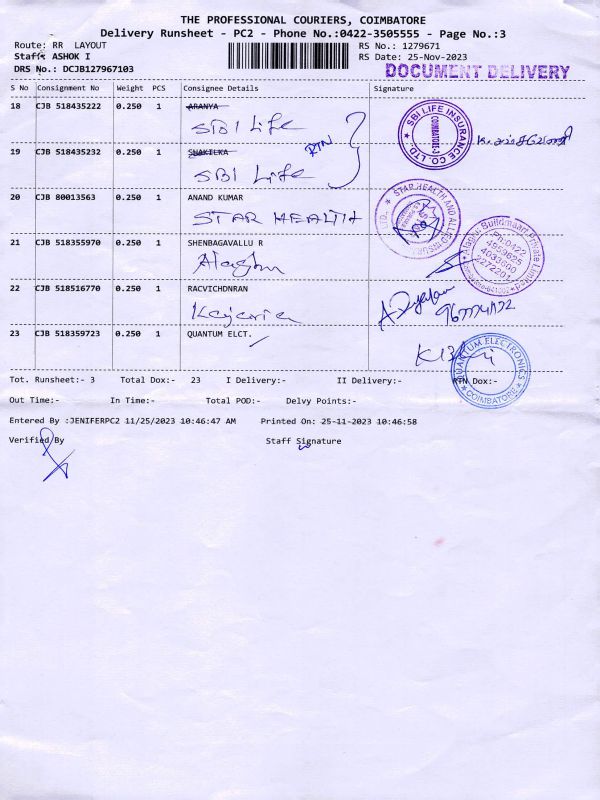 THE PROFESSIONAL COURIERS, COIMBATORE
Delivery Runsheet - PC2 - Phone No.:0422-3505555 - Page No.:3
Route: RR LAYOUT
RS No.: 1279671
Staff: ASHOK I
RS Date: 25-Nov-2023
DRS No.: DCJB127967103
DOCUMENT DELIVERY
S No Consignment No Weight PCS Consignee Details Signature
18 CJB 518435222 0.250 1 ARANYA
SBI Life
SBI LIFE INSURANCE CO. LTD.
COIMBATORE-3
RTN
19 CJB 518435232 0.250 1
SBI Life
20 CJB 80013563 0.250 1 ANAND KUMAR
STAR HEALTH
STAR HEALTH AND ALLIED INSU LTD.
21 CJB 518355970 0.250 1 SHENBAGAVALLU R
Alaghu
Alaghu Buildmaart Private Limited
Ph:0422
22 CJB 518516770 0.250 1 RACVICHDNRAN
Kajaria
23 CJB 518359723 0.250 1 QUANTUM ELCT.
QUANTUM ELECTRONICS
COIMBATORE
Tot. Runsheet:- 3 Total Dox:- 23 I Delivery:- II Delivery:- RTN Dox:-
Out Time:- In Time:- Total POD:- Delvy Points:-
Entered By :JENIFERPC2 11/25/2023 10:46:47 AM Printed On: 25-11-2023 10:46:58
Verified By Staff Signature